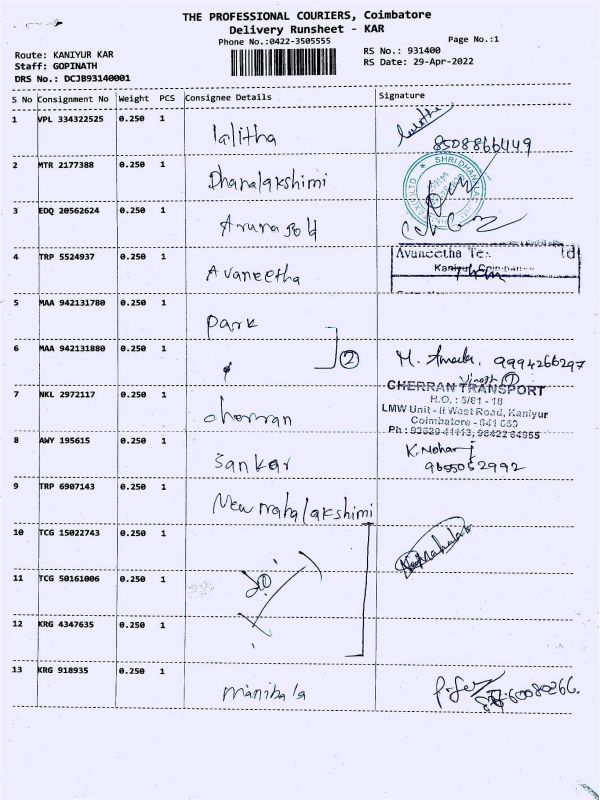 THE PROFESSIONAL COURIERS, Coimbatore
Delivery Runsheet - KAR
Phone No.:0422-3505555
Page No.:1
Route: KANIYUR KAR
RS No.: 931400
Staff: GOPINATH
RS Date: 29-Apr-2022
DRS No.: DCJB93140001
S No Consignment No Weight PCS Consignee Details Signature
1 VPL 334322525 0.250 1 lalitha
8508866449
2 MTR 2177388 0.250 1 Dhanalakshimi
SHRI DHANALAL
3 EDQ 20562624 0.250 1
4 TRP 5524937 0.250 1 Avaneetha
Avaneetha Te
5 MAA 942131780 0.250 1 Park
6 MAA 942131880 0.250 1 2
9994266297
7 NKL 2972117 0.250 1 cherran
CHERRAN TRANSPORT
H.O. : 5/81 - 18
LMW Unit - II West Road, Kaniyur
Coimbatore - 641 659
8 AWY 195615 0.250 1 Sankar
K. Mohan
9655052992
9 TRP 6907143 0.250 1 New mahalakshimi
10 TCG 15022743 0.250 1
11 TCG 50161006 0.250 1
12 KRG 4347635 0.250 1
13 KRG 918935 0.250 1 manibala